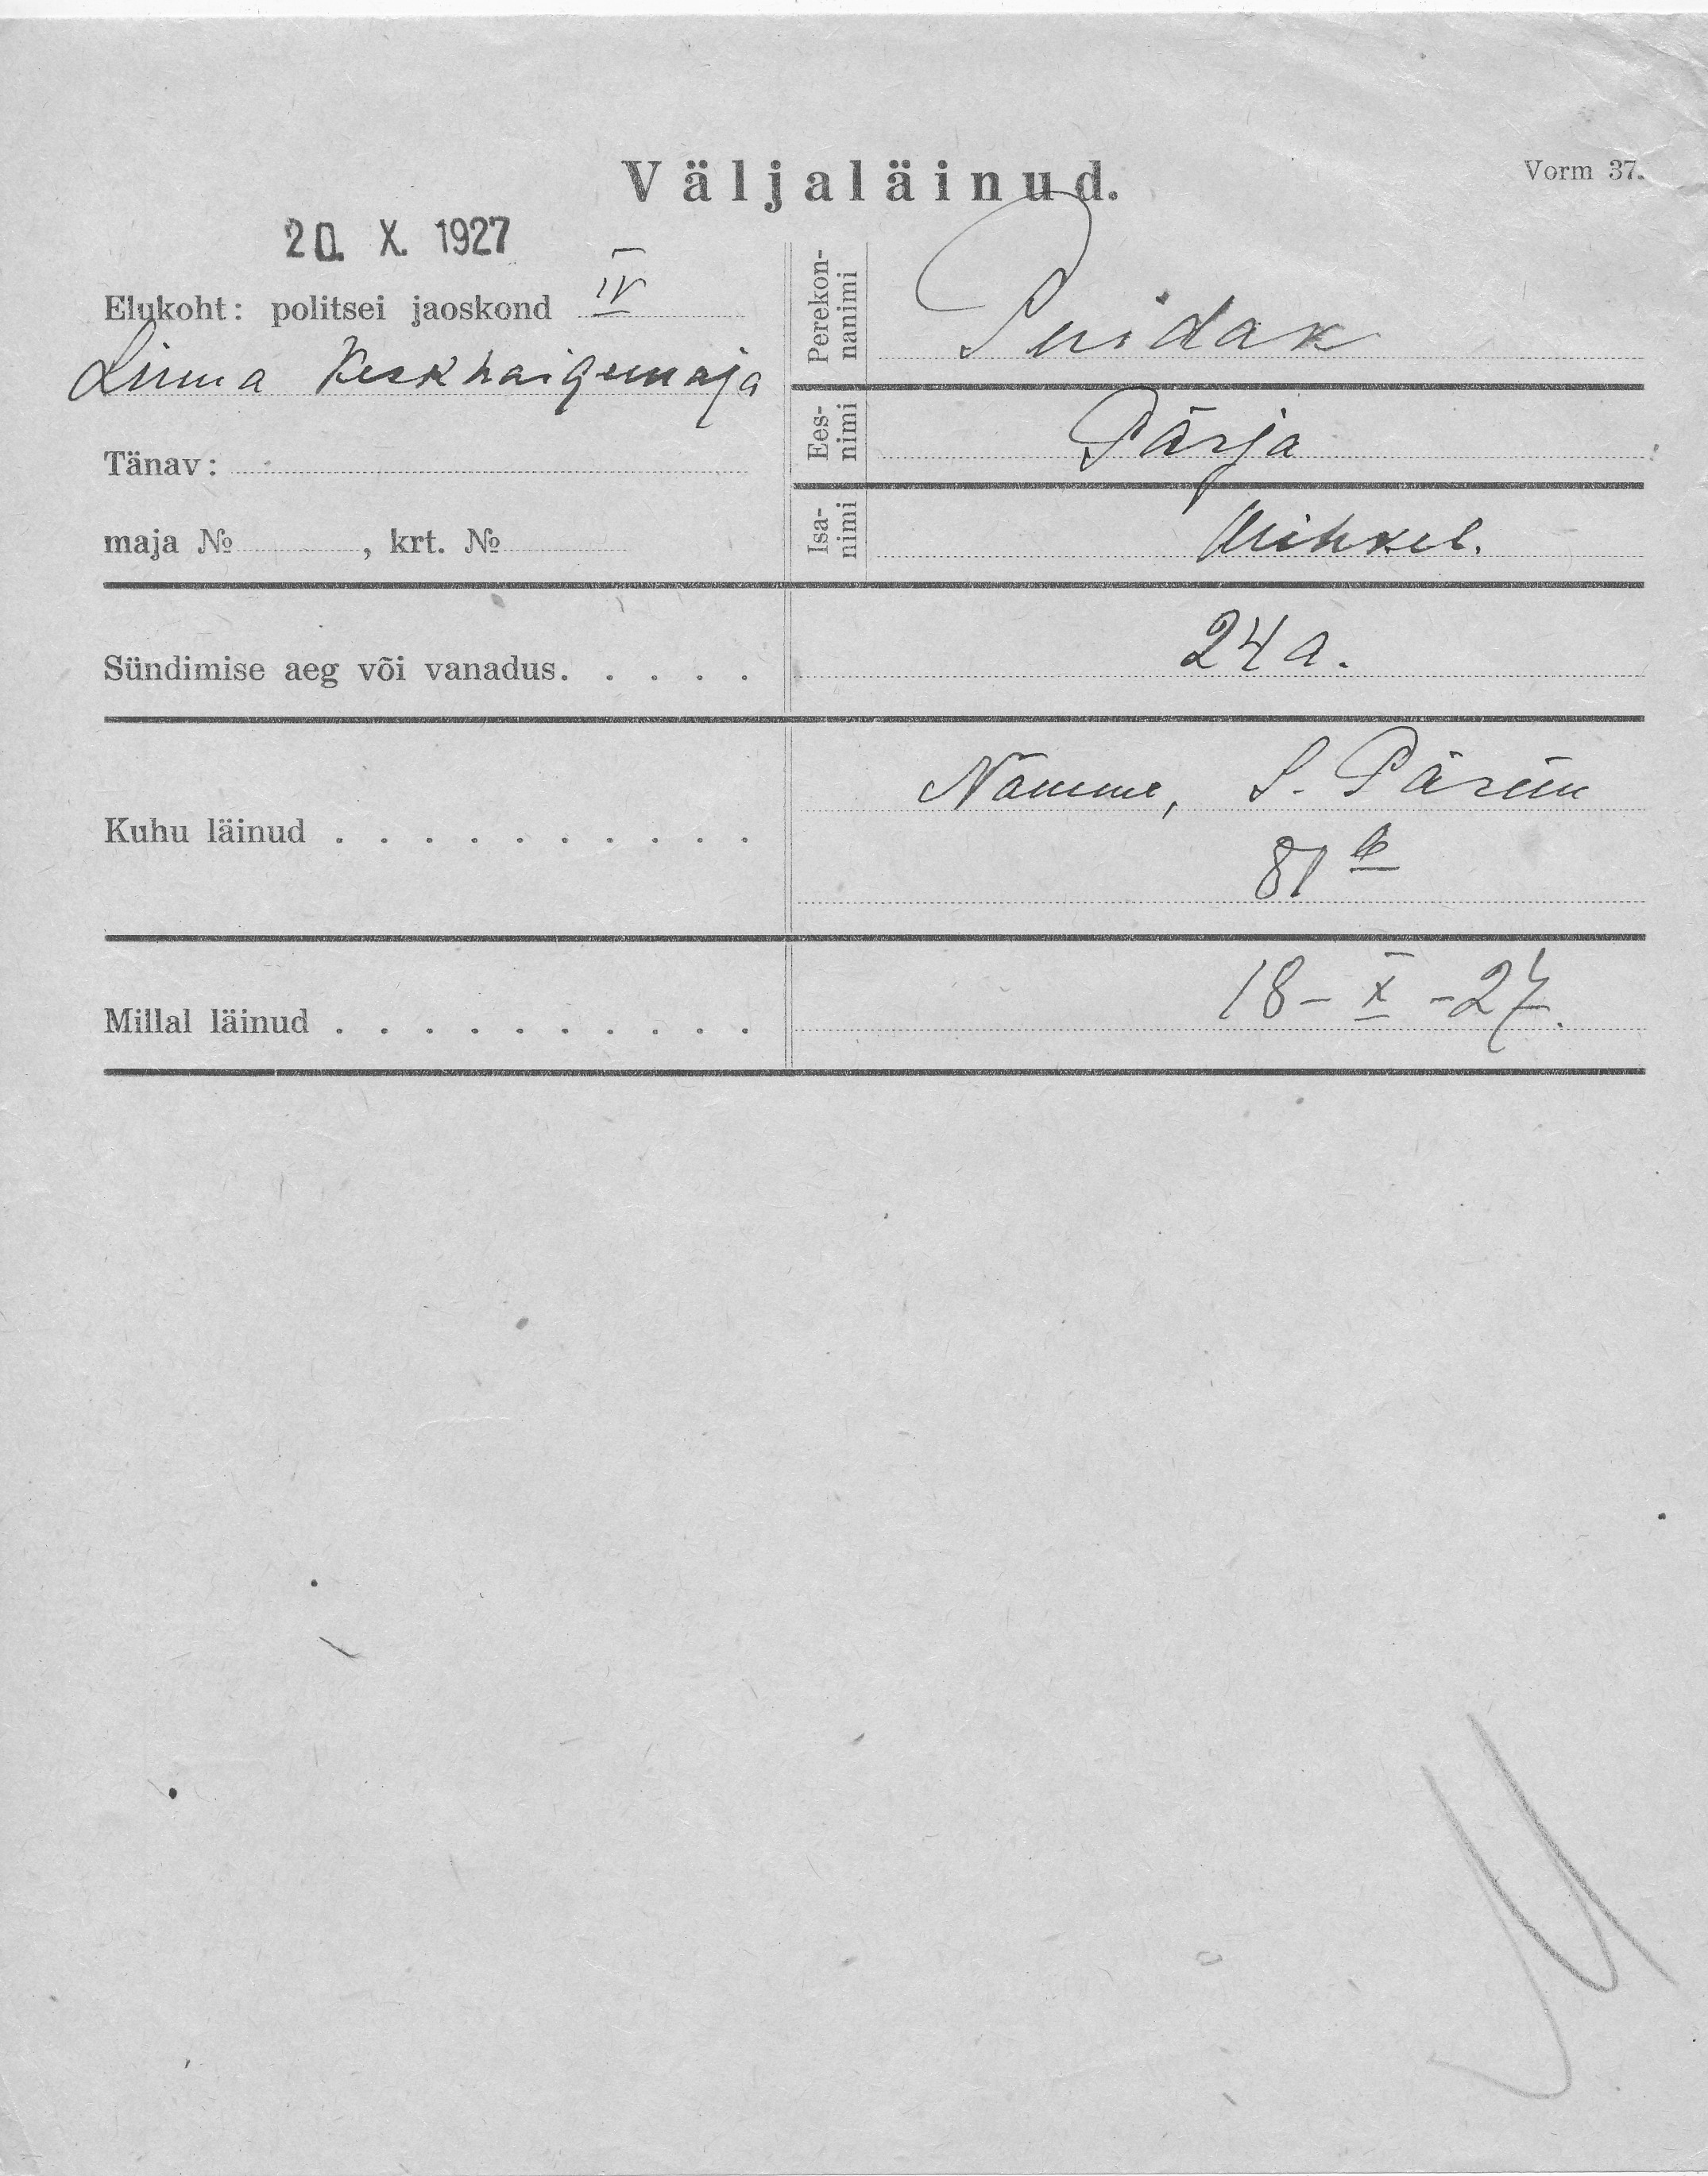 Väljaläinud.
Vorm 37.
20. X. 1927
Elukoht: politsei jaoskond IV
Linna Keskhaigemaja
Tänav:
maja № , krt. №
Perekon-
nanimi
Puidak
Ees-
nimi
Pärja
Isa-
nimi
Mihkel.
Sündimise aeg või vanadus. . . . .
24 a.
Kuhu läinud . . . . . . . . . .
Nõmme, S. Pärnu
81 b
Millal läinud . . . . . . . . . .
18 - X - 27.